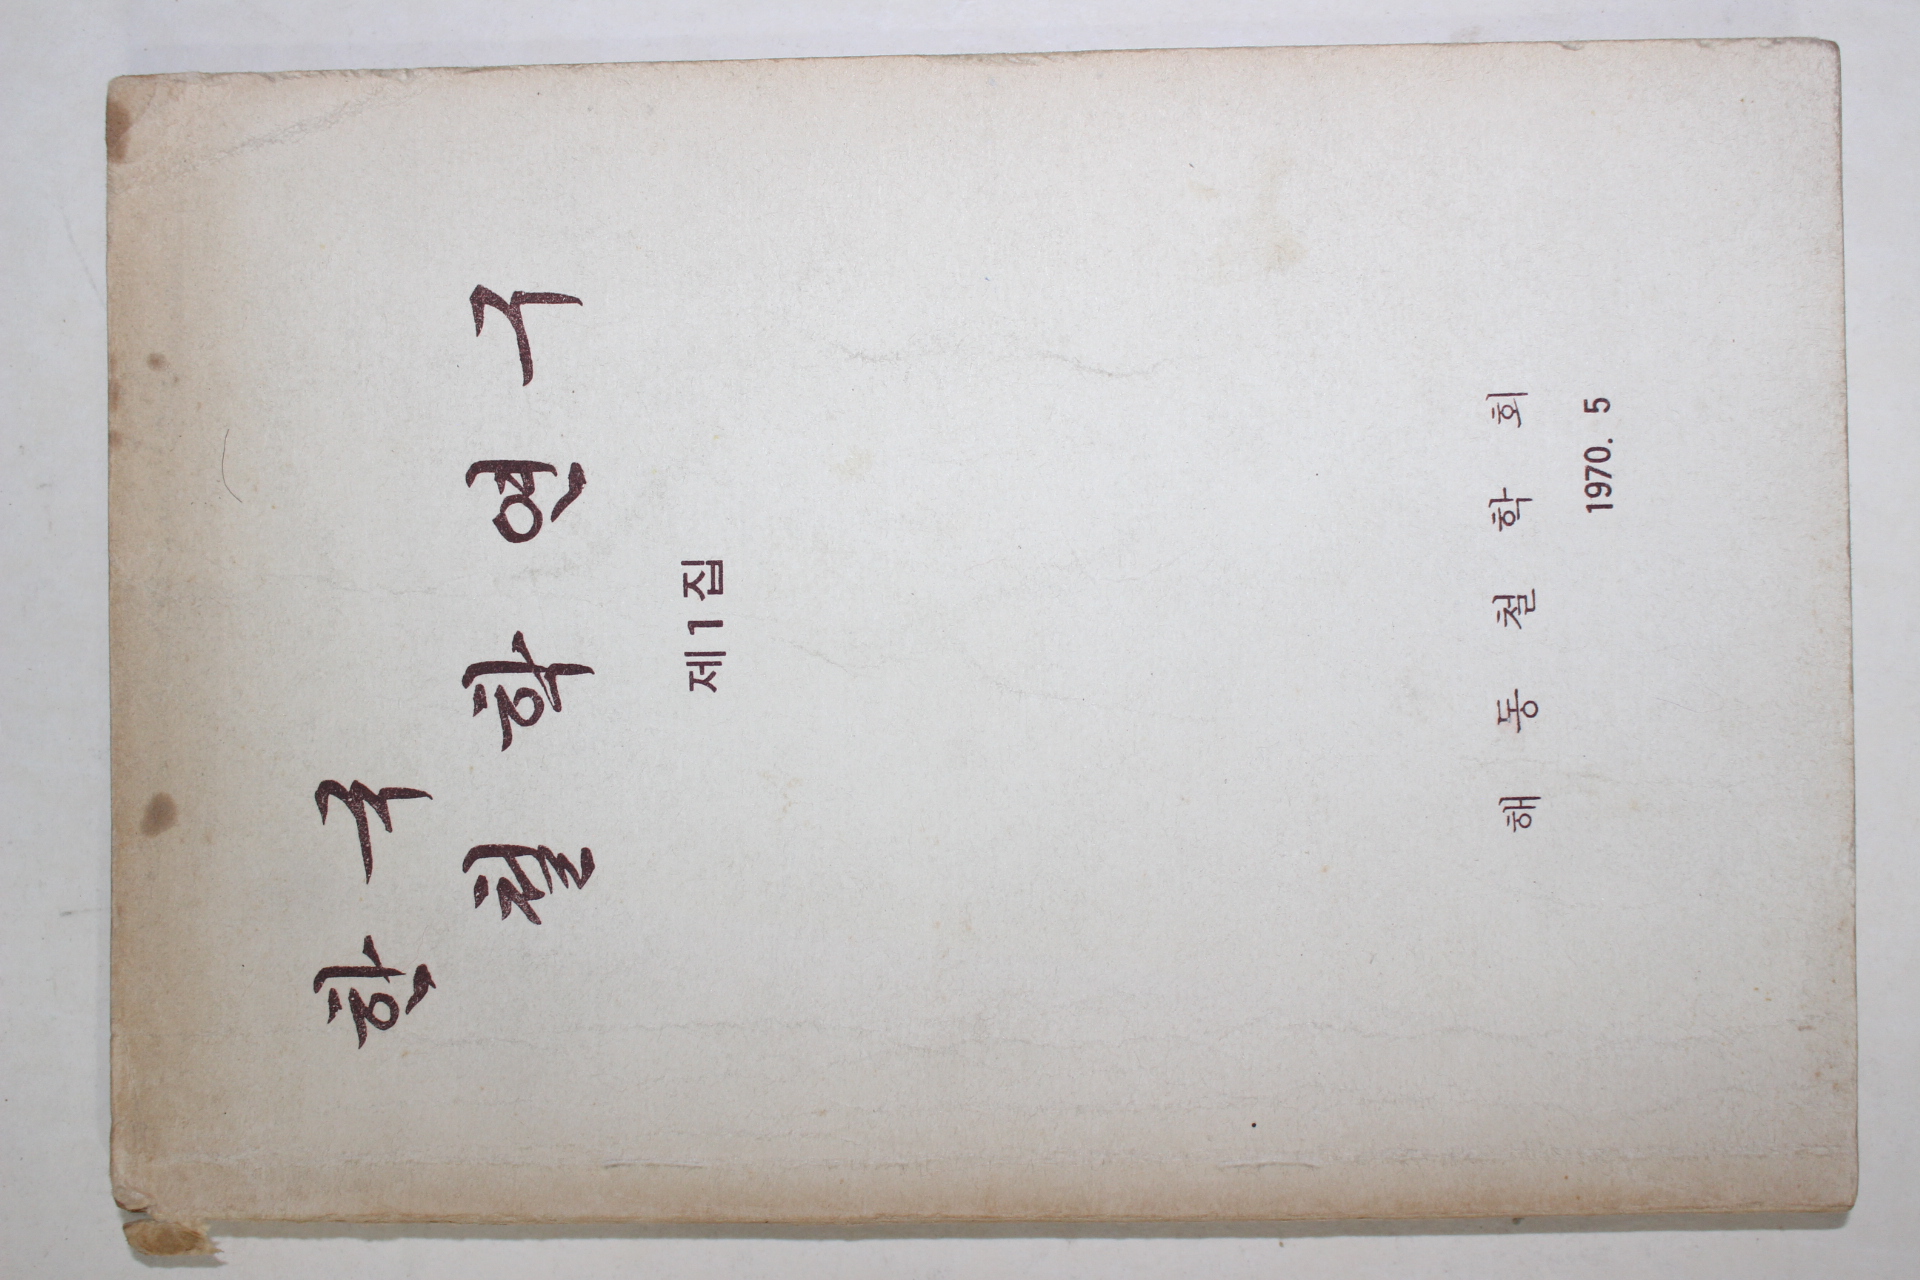 한국
철학연구
제1집
해동철학회
1970. 5